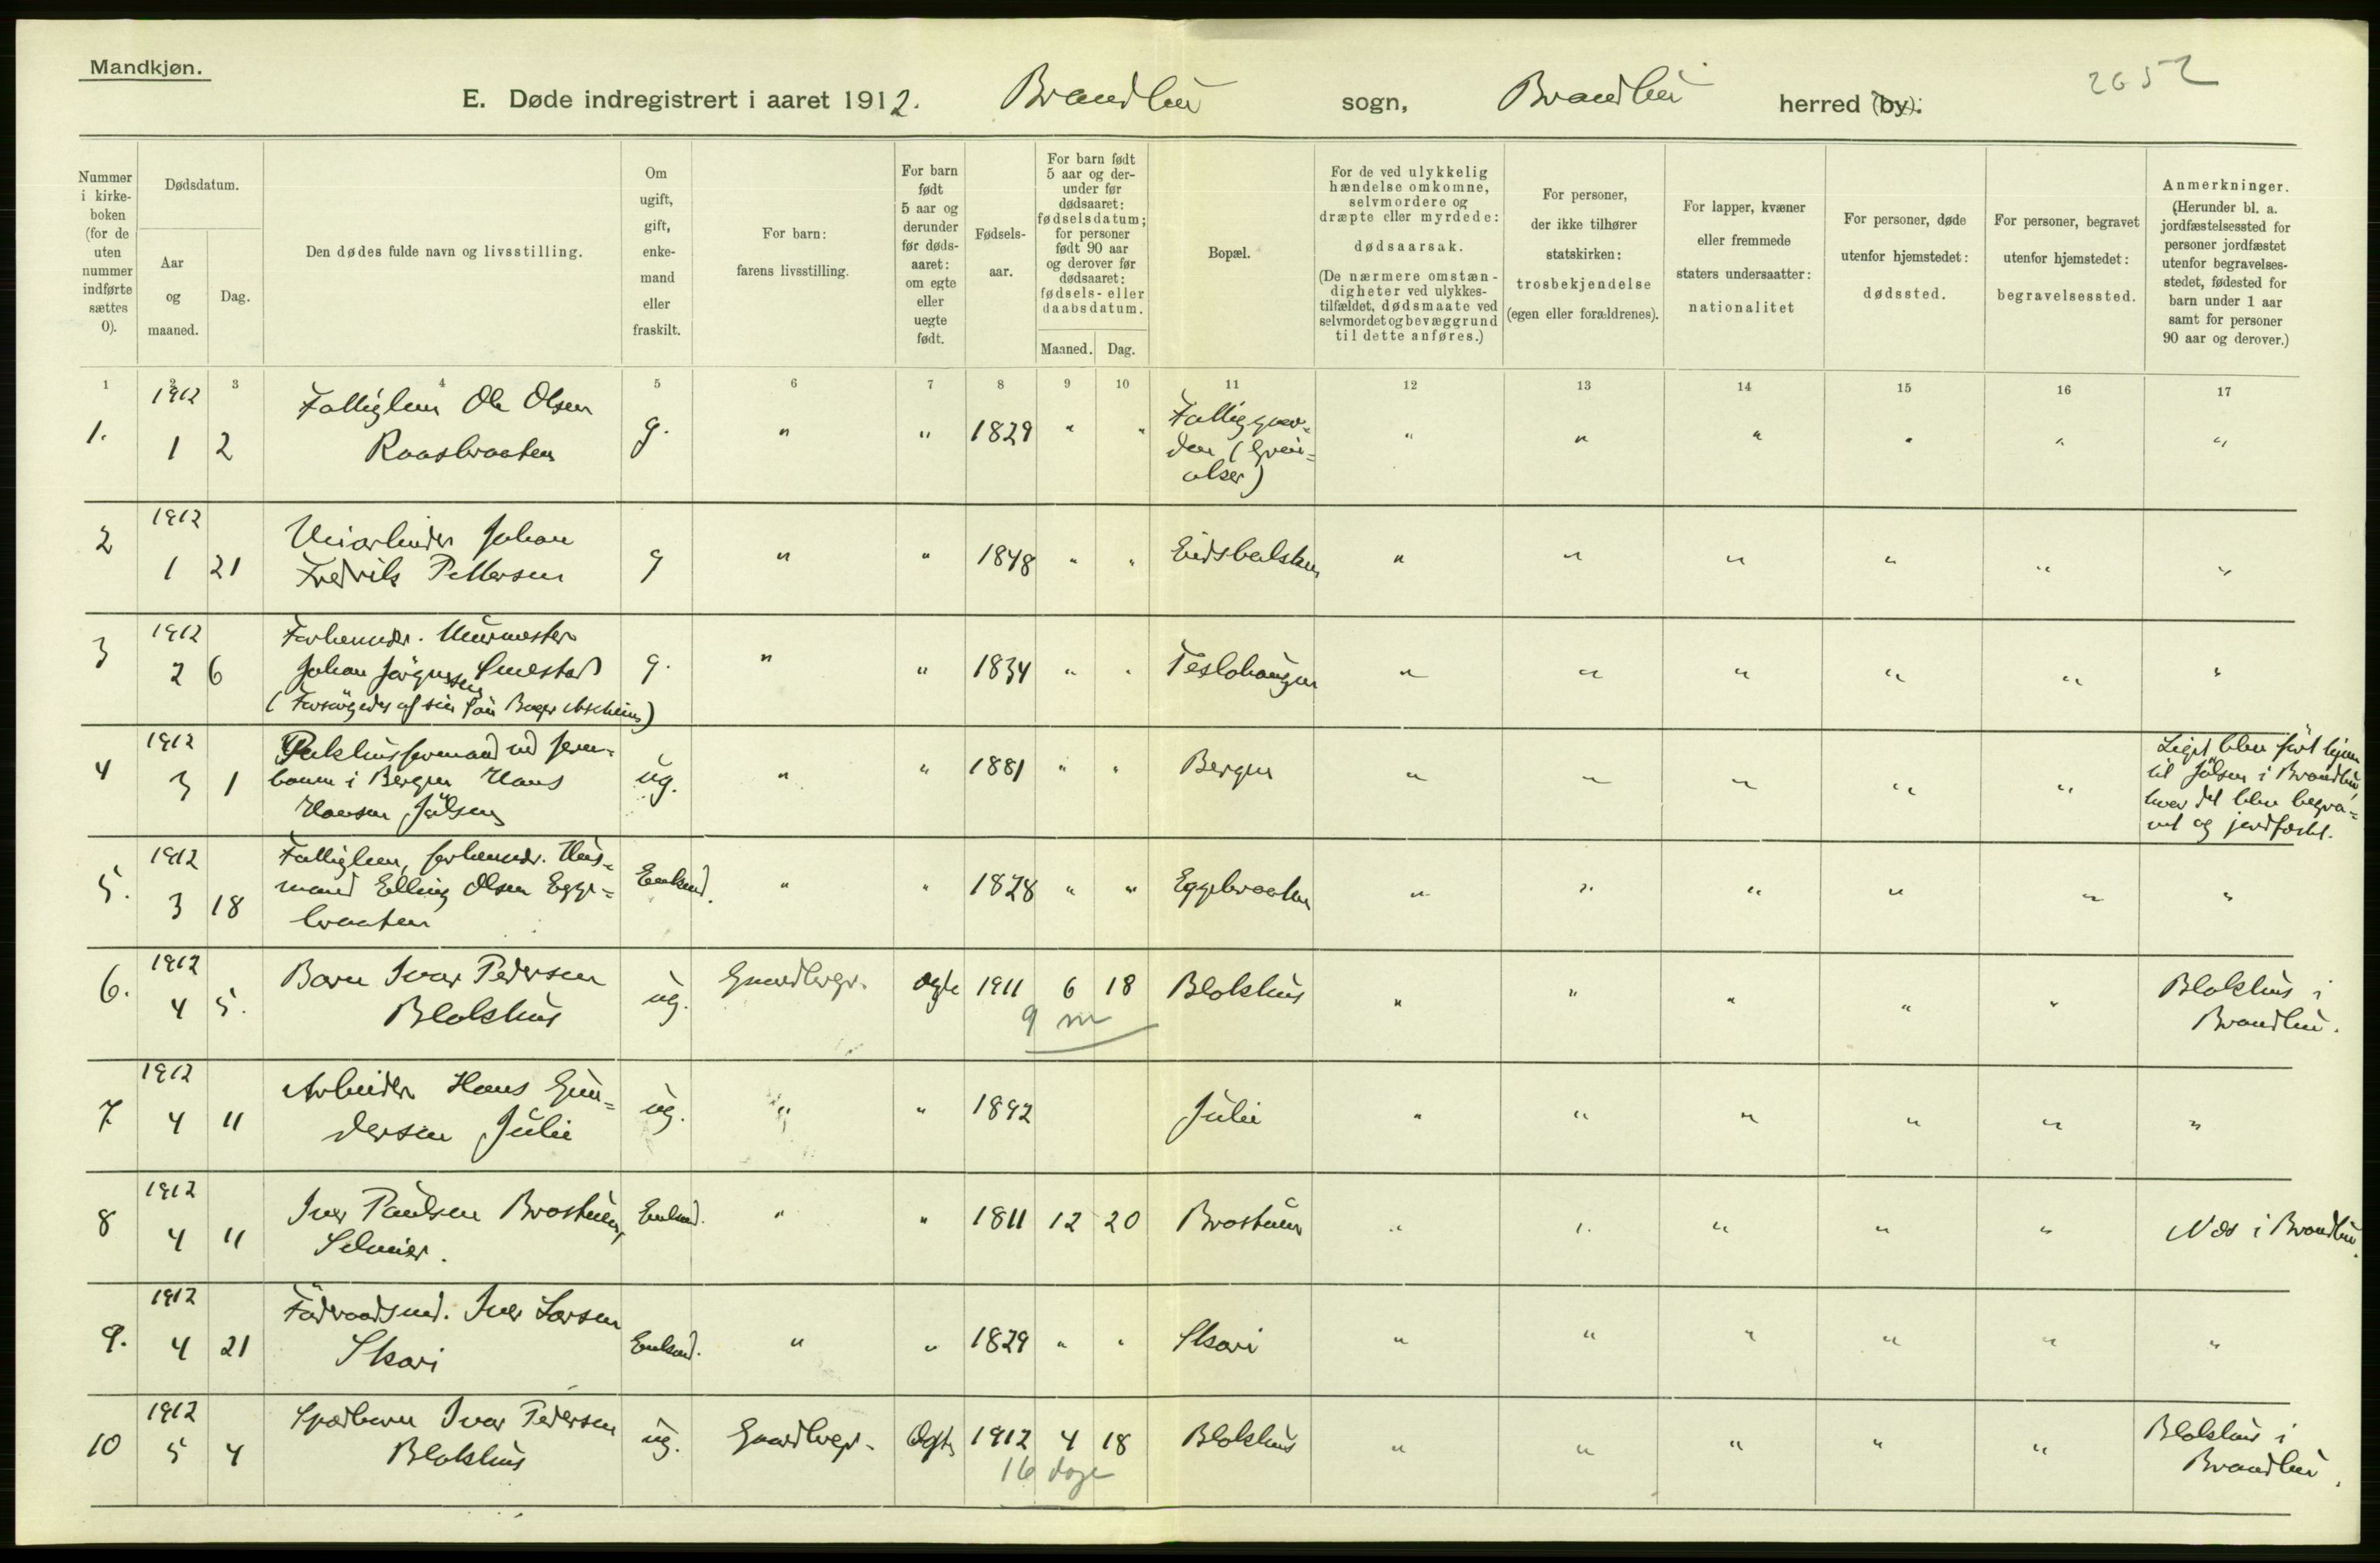 Mandkjøn.
E. Døde indregistrert i aaret 1912. Brandbu sogn, Brandbu herred (by):
2652
Nummer i kirke-boken (for de uten nummer indførte sættes 0).
Dødsdatum.
Aar og maaned.
Dag.
Den dødes fulde navn og livsstilling.
Om ugift, gift, enke-mand eller fraskilt.
For barn: farens livsstilling.
For barn født 5 aar og derunder før døds-aaret: om egte eller uegte født.
Fødsels-aar.
For barn født 5 aar og der-under før dødsaaret: fødselsdatum; for personer født 90 aar og derover før dødsaaret: fødsels- eller daabsdatum.
Maaned. Dag.
Bopæl.
For de ved ulykkelig hændelse omkomne, selvmordere og dræpte eller myrdede: dødsaarsak.
(De nærmere omstæn-digheter ved ulykkes-tilfældet, dødsmaate ved selvmordet og bevæggrund til dette anføres.)
For personer, der ikke tilhører statskirken: trosbekjendelse (egen eller forældrenes).
For lapper, kvæner eller fremmede staters undersaatter: nationalitet
For personer, døde utenfor hjemstedet: dødssted.
For personer, begravet utenfor hjemstedet: begravelsessted.
Anmerkninger. (Herunder bl. a. jordfæstelsessted for personer jordfæstet utenfor begravelses-stedet, fødested for barn under 1 aar samt for personer 90 aar og derover.)
1 2 3 4 5 6 7 8 9 10 11 12 13 14 15 16 17
1. 1912 1 2 Fattiglem Ole Olsen Raasbraaten g. " " 1829 " " Fattiggaar=den " " " " " "
2 1912 1 21 Veiarbeider Johan Fredrik Pettersen g " " 1848 " " " " " " " "
3 1912 2 6 Forhenvær. Murmester Johan Jörgensen Smestad (Forsörgedes af sin Sön) g. " " 1834 " " Teslohaugen " " " " " "
4 1912 3 1 Pakhusformand ved Jern=banen i Bergen Hans Hansen Jölsen ug. " " 1881 " " Bergen " " " " " Liget blev fört hjem til Jölsen i Brandbu, hvor det blev begra=vet og jordfæstet.
5. 1912 3 18 Fattiglem, forhenvær. Hus=mand Elling Olsen Egge=braaten Enkmd. " " 1828 " " Eggebraaten " " " " " "
6. 1912 4 5. Barn Ivar Pedersen Blokhus ug. Gaardbrgr. ægte 1911 6 18 Blokhus " " " " " Blokhus i Brandbu.
9 m
7. 1912 4 11 Arbeider Hans Gun=dersen Julie ug. " " 1892 Julie " " " " " "
8 1912 4 11 Iver Paulsen Enkmd. " " 1811 12 20 " " " " " Næs i Brandbu.
9. 1912 4 21 Föderaadsmd. Iver Larsen Skari Enkmd. " " 1829 " " Skari " " " " " "
10 1912 5 4 Spædbarn Ivar Pedersen Blokhus ug. Gaardbrgr. Ægte 1912 4 18 Blokhus " " " " " Blokhus i Brandbu.
16 dage